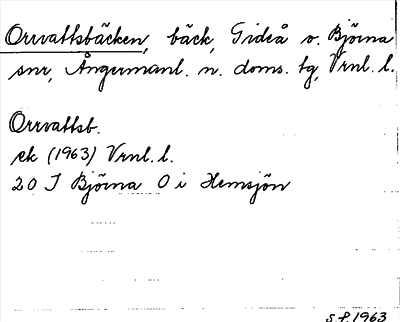 Orrvattsbäcken, bäck, Gideå o. Björna
snr, Ångermanl. n. doms. tg, Vrnl. l.
Orrvattsb.
ek (1963) Vrnl. l.
20 J Björna O i Hemsjön
S.P. 1963